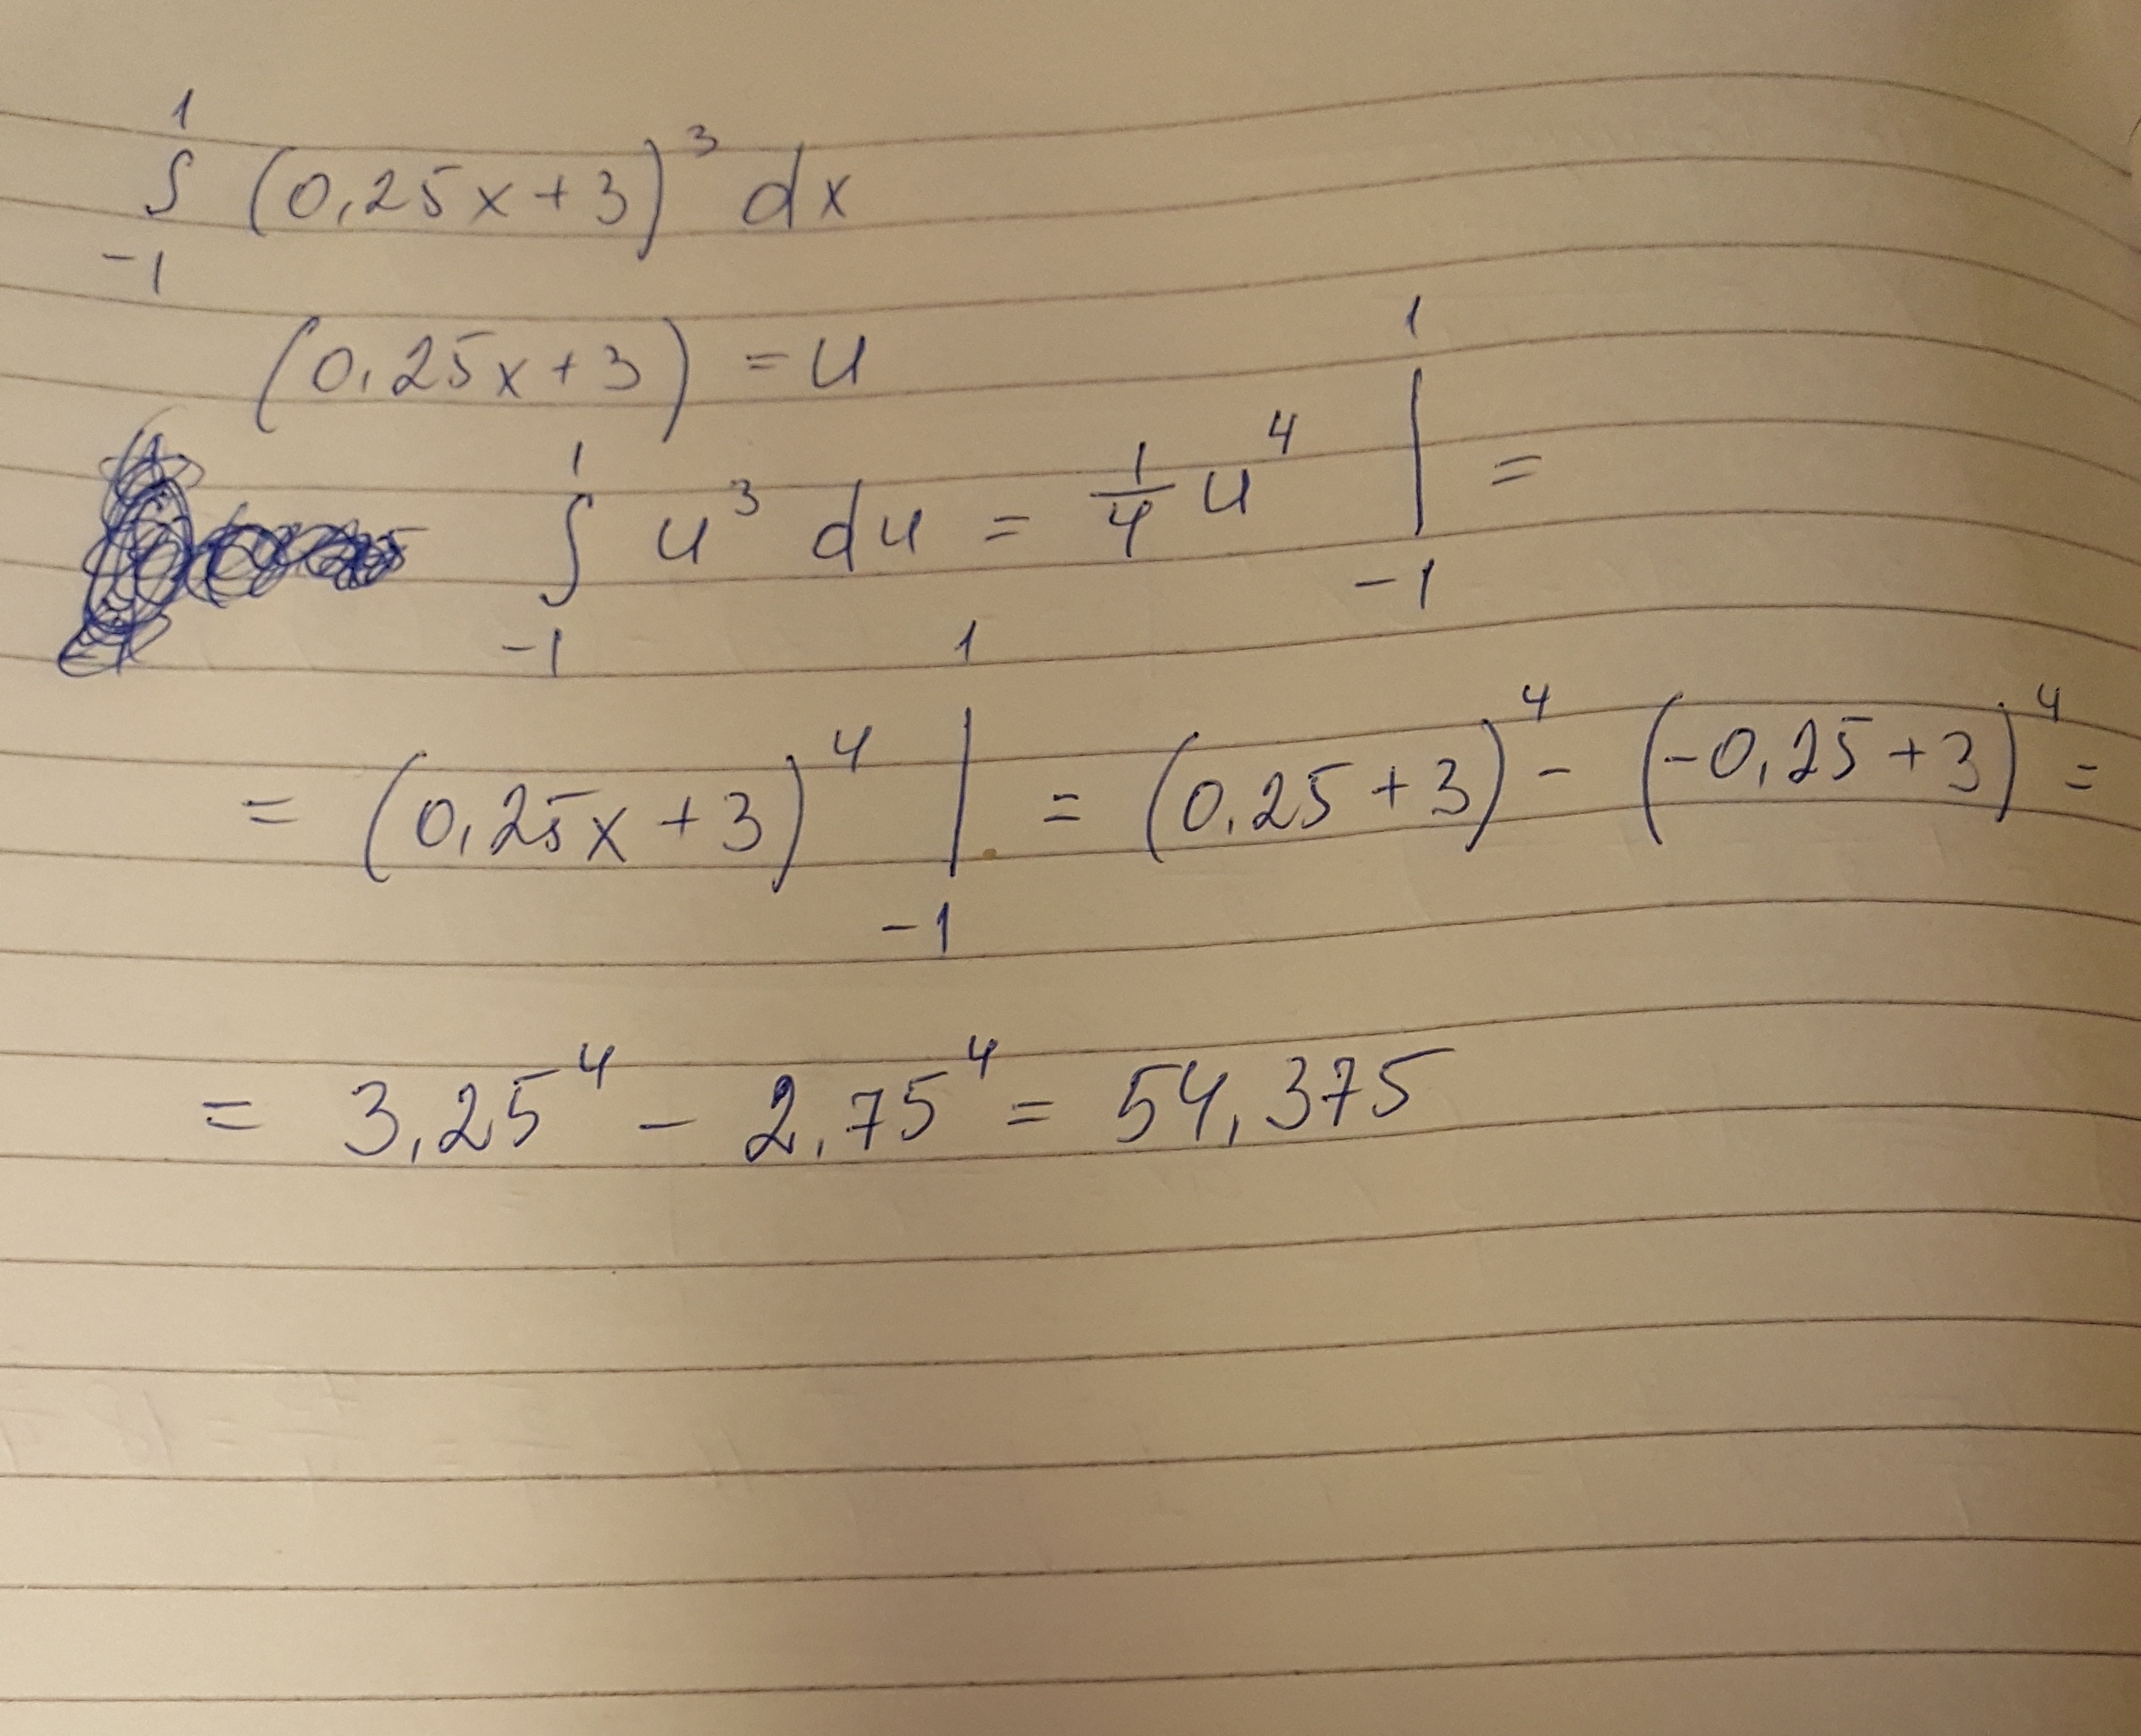 ∫_{-1}^{1} (0,25x+3)^3 dx
(0,25x+3) = u
∫_{-1}^{1} u^3 du = 1/4 u^4 |_{-1}^{1} =
= (0,25x+3)^4 |_{-1}^{1} = (0,25+3)^4 - (-0,25+3)^4 =
= 3,25^4 - 2,75^4 = 54,375